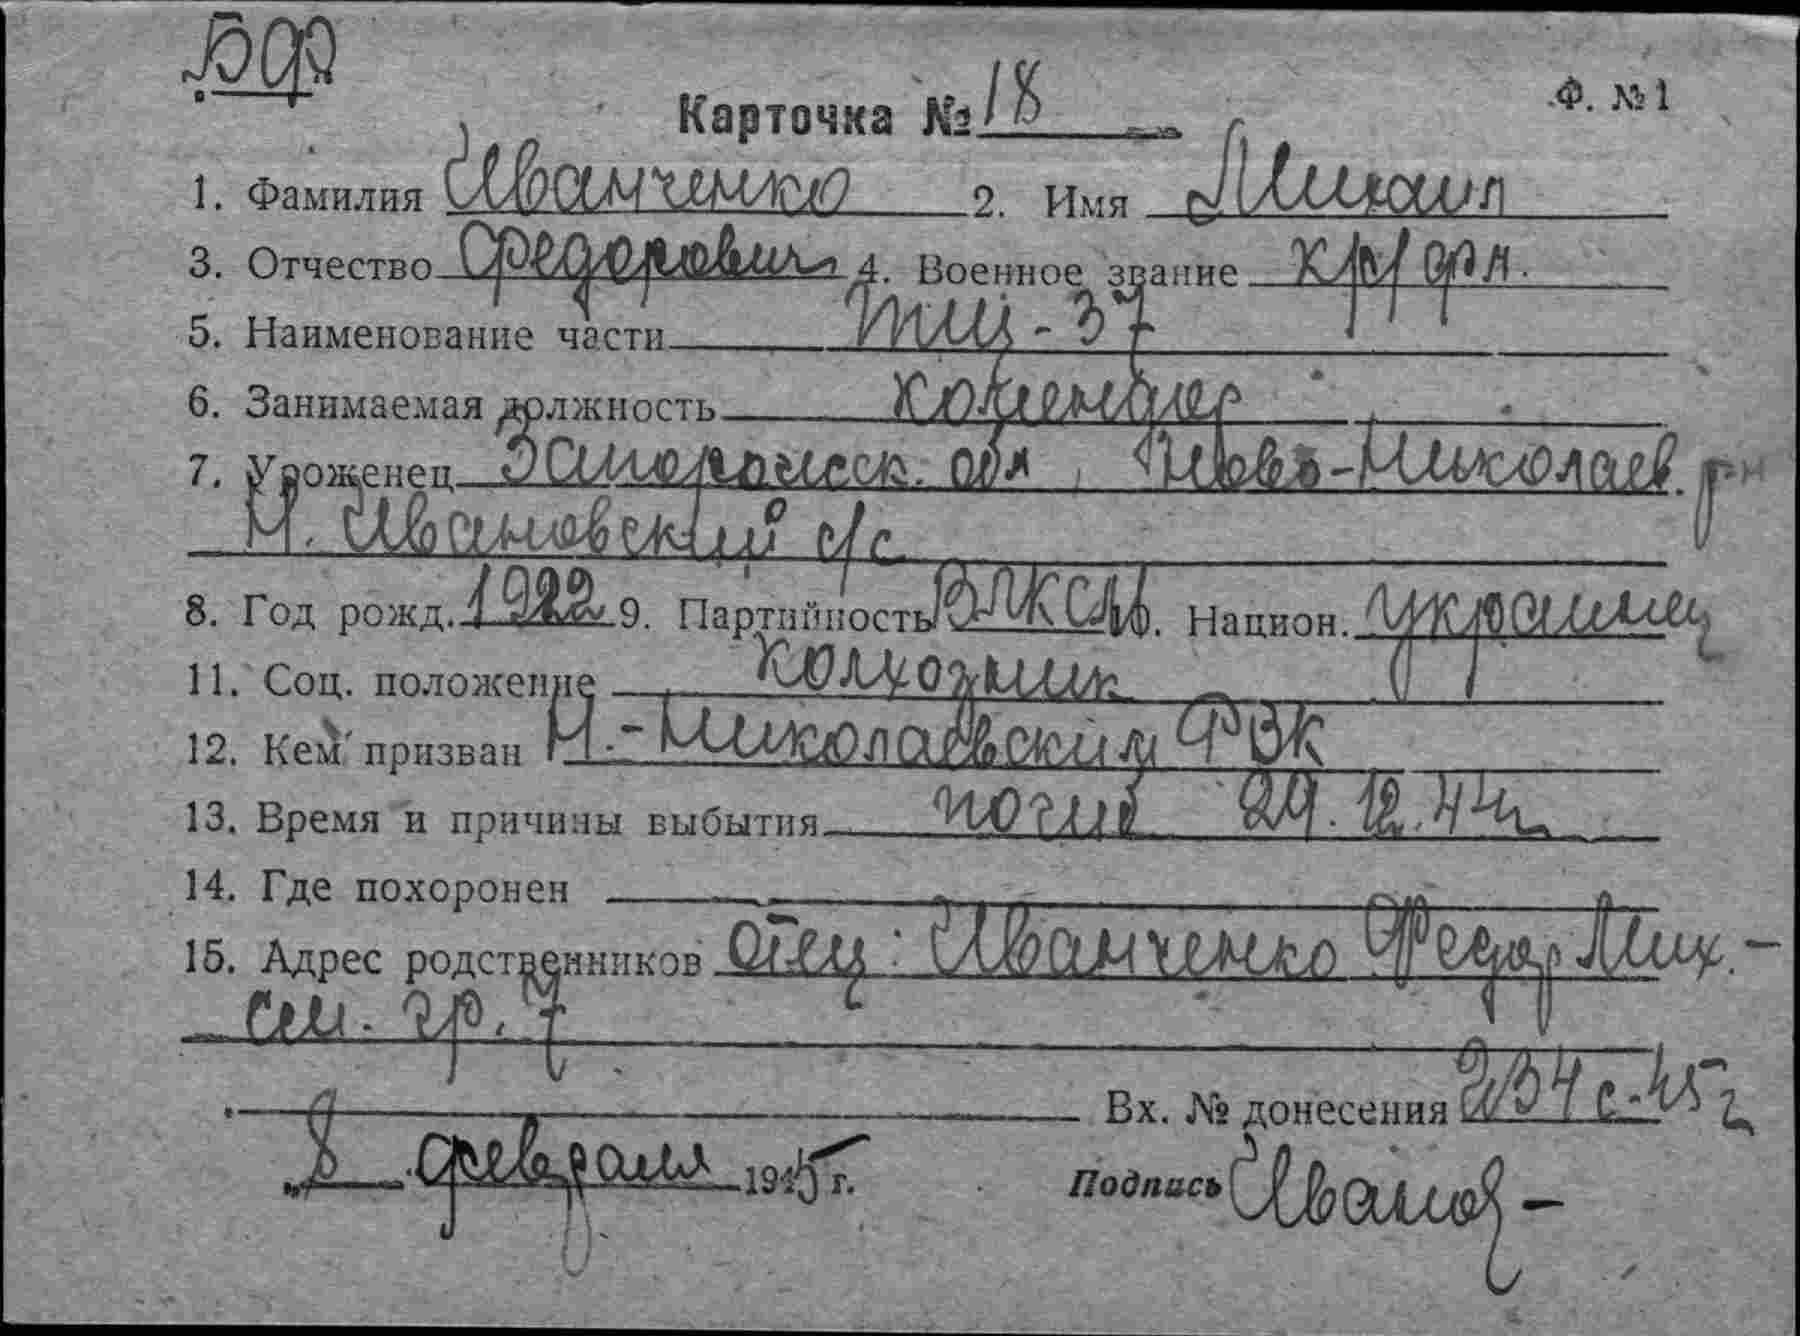 БФ
Ф. №1
Карточка № 18
1. Фамилия Иванченко 2. Имя Михаил
3. Отчество Федорович 4. Военное звание кр/фл.
5. Наименование части ТЩ-37
6. Занимаемая должность комендор
7. Уроженец Запорожск. обл, Ново-Николаев. р-н
Н. Ивановский с/с
8. Год рожд. 1922 9. Партийность ВЛКСМ 10. Национ. украинец
11. Соц. положение колхозник
12. Кем призван Н.-Николаевским РВК
13. Время и причины выбытия погиб 24.12.44г.
14. Где похоронен
15. Адрес родственников отец: Иванченко Федор Мих. -
см. гр. 7
Вх. № донесения с-45г
"8 февраля 1945 г. Подпись Иванов -